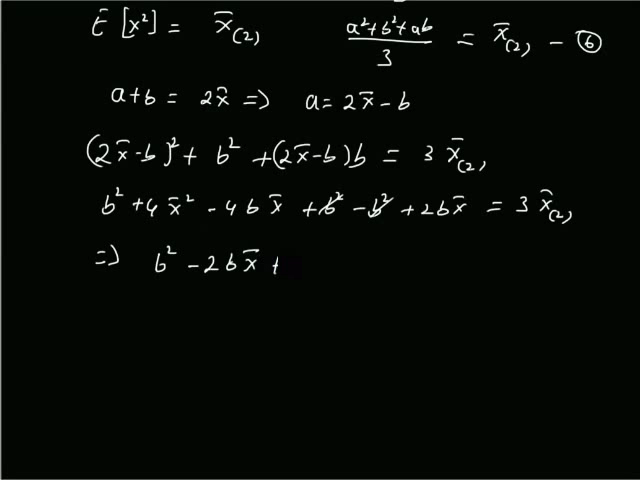 E[x²] = x̄₍₂₎   (a²+b²+ab)/3 = x̄₍₂₎ – ⑥
a+b = 2x̄ => a = 2x̄ – b
(2x̄-b)² + b² + (2x̄-b)b = 3 x̄₍₂₎
b² + 4x̄² - 4bx̄ + b² - b² + 2bx̄ = 3 x̄₍₂₎
=> b² - 2bx̄ +